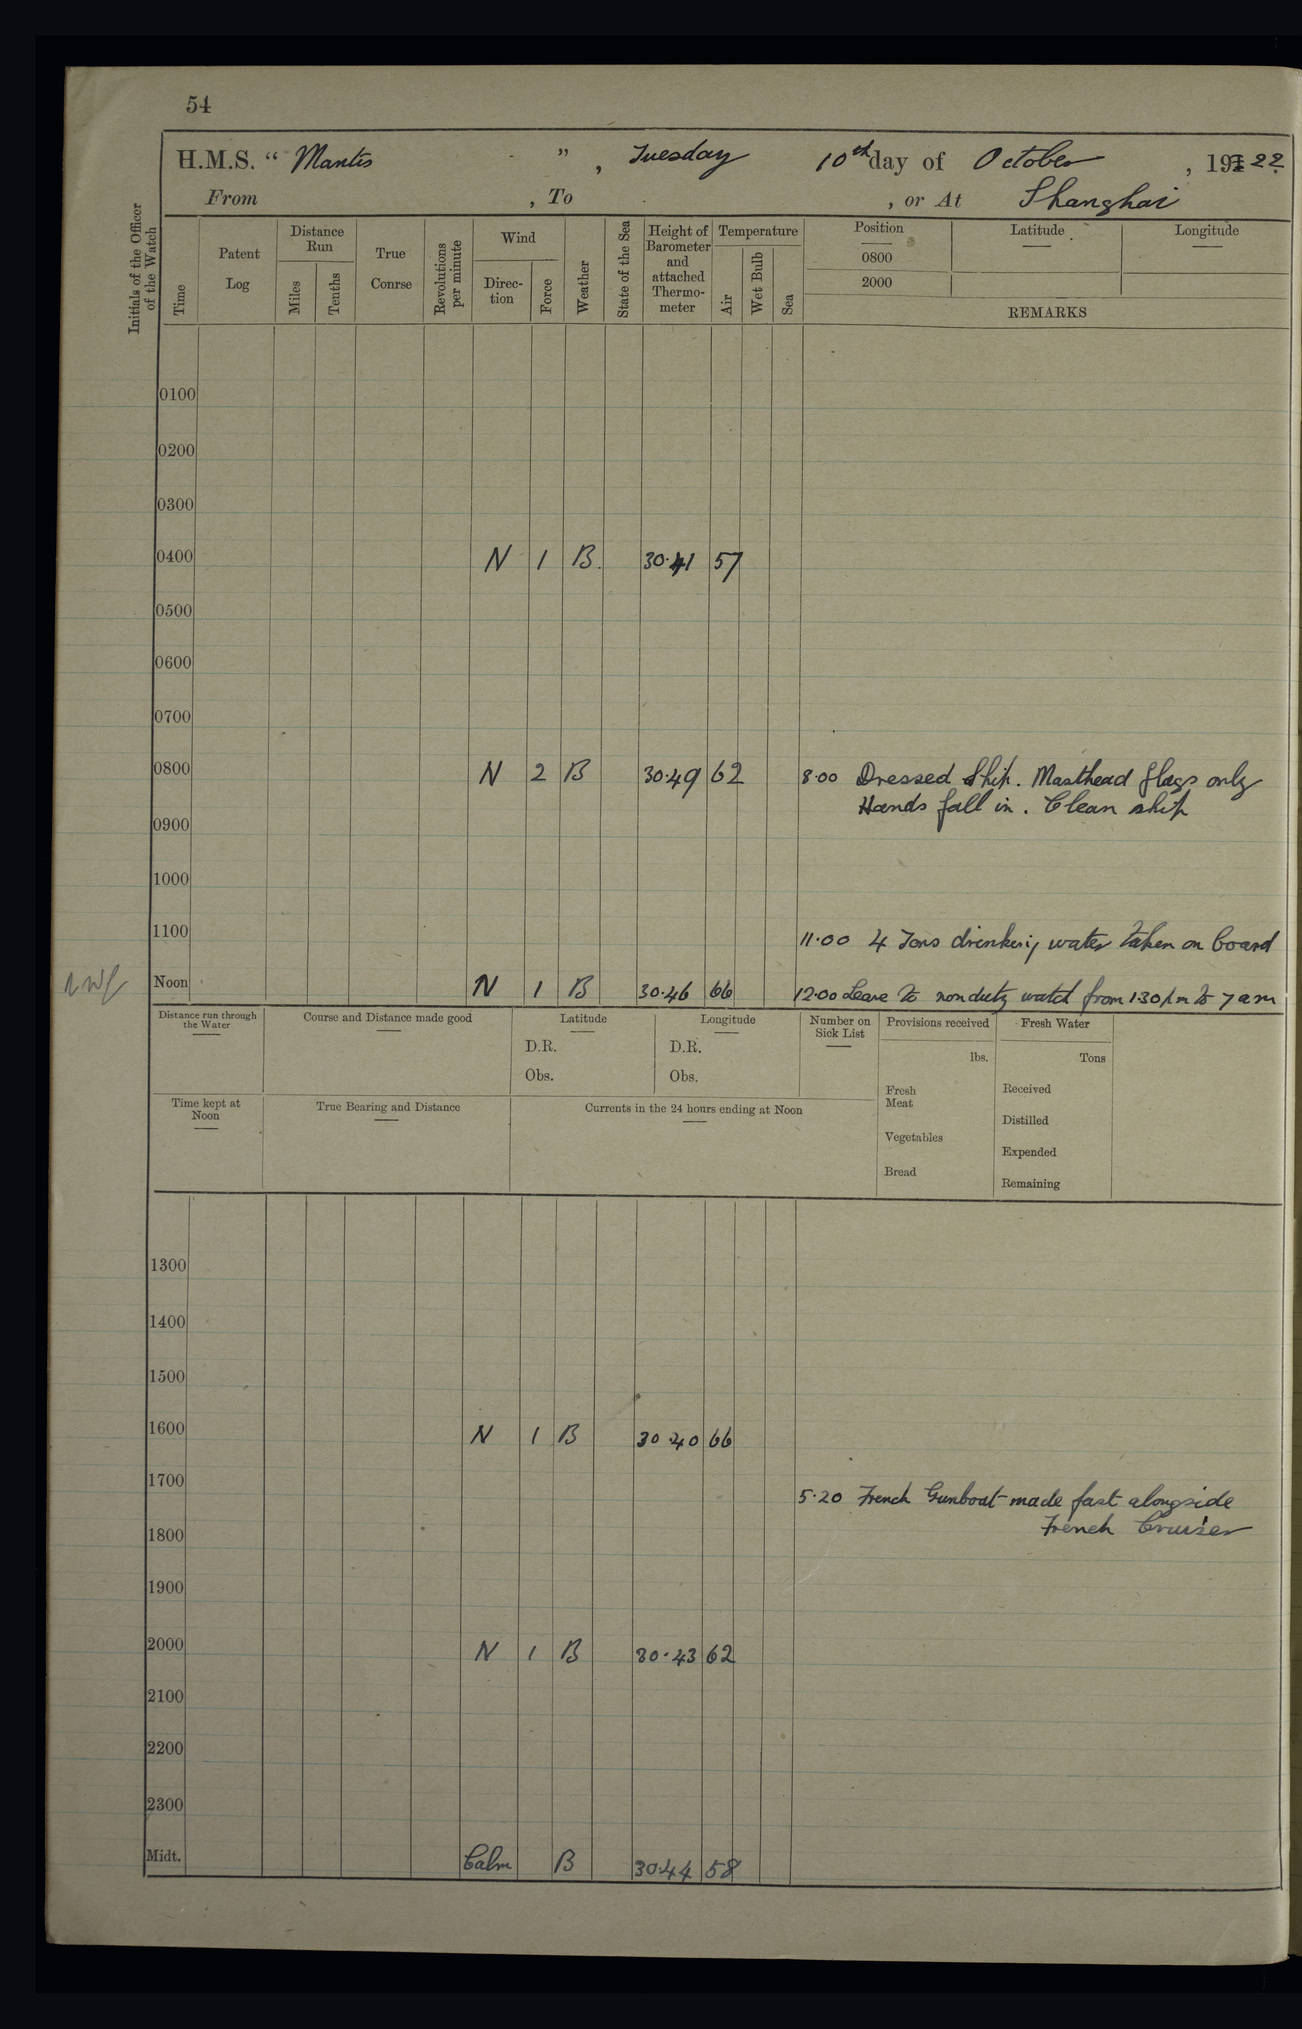 54
H.M.S. "Mantis", Tuesday 10th day of October, 1922.
From , To , or At Shanghai
Initials of the Officer of the Watch
Time
Patent Log
Distance Run
Miles
Tenths
True Conrse
Revolutions per minute
Wind
Direc-tion
Force
Weather
State of the Sea
Height of Barometer and attached Thermo-meter
Temperature
Air
Wet Bulb
Sea
Position
0800
2000
Latitude
Longitude
REMARKS
0100
0200
0300
0400 N 1 B. 30.41 57
0500
0600
0700
0800 N 2 B 30.49 62 8.00 Dressed Ship. Masthead flags only
Hands fall in. Clean ship
0900
1000
1100 11.00 4 Tons drinking water taken on board
Noon N 1 B 30.46 66 12.00 Leave to non duty watch from 1.30 pm to 7 am
Distance run through the Water
Course and Distance made good
Latitude
D.R.
Obs.
Longitude
D.R.
Obs.
Number on Sick List
Provisions received
lbs.
Fresh Meat
Vegetables
Bread
Fresh Water
Tons
Received
Distilled
Expended
Remaining
Time kept at Noon
True Bearing and Distance
Currents in the 24 hours ending at Noon
1300
1400
1500
1600 N 1 B 30.40 66
1700 5.20 French Gunboat made fast alongside
French Cruiser
1800
1900
2000 N 1 B 30.43 62
2100
2200
2300
Midt. Calm B 30.44 58